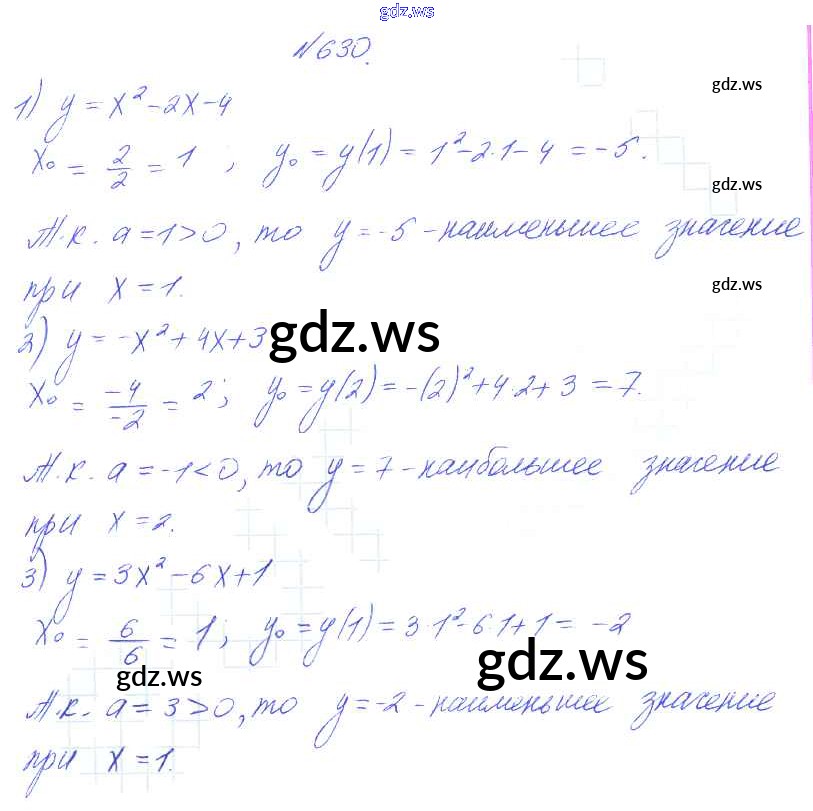 gdz.ws
№630.
gdz.ws
1) y = x² - 2x - 4
x₀ = 2/2 = 1 ; y₀ = y(1) = 1² - 2·1 - 4 = -5.
gdz.ws
Т.к. a = 1 > 0, то y = -5 - наименьшее значение
при x = 1.
gdz.ws
2) y = -x² + 4x + 3
gdz.ws
x₀ = -4/-2 = 2; y₀ = y(2) = -(2)² + 4·2 + 3 = 7.
Т.к. a = -1 < 0, то y = 7 - наибольшее значение
при x = 2.
3) y = 3x² - 6x + 1
x₀ = 6/6 = 1; y₀ = y(1) = 3·1² - 6·1 + 1 = -2
gdz.ws
gdz.ws
Т.к. a = 3 > 0, то y = -2 - наименьшее значение
при x = 1.